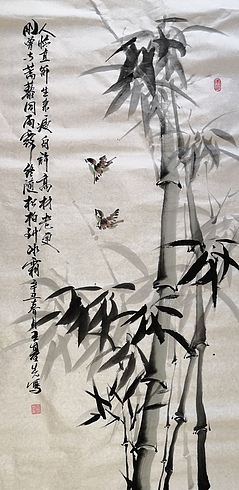 人怜直節生来瘦自許高材老更
剛曾与蒿藜同雨露終随松柏到冰霜辛丑春月王